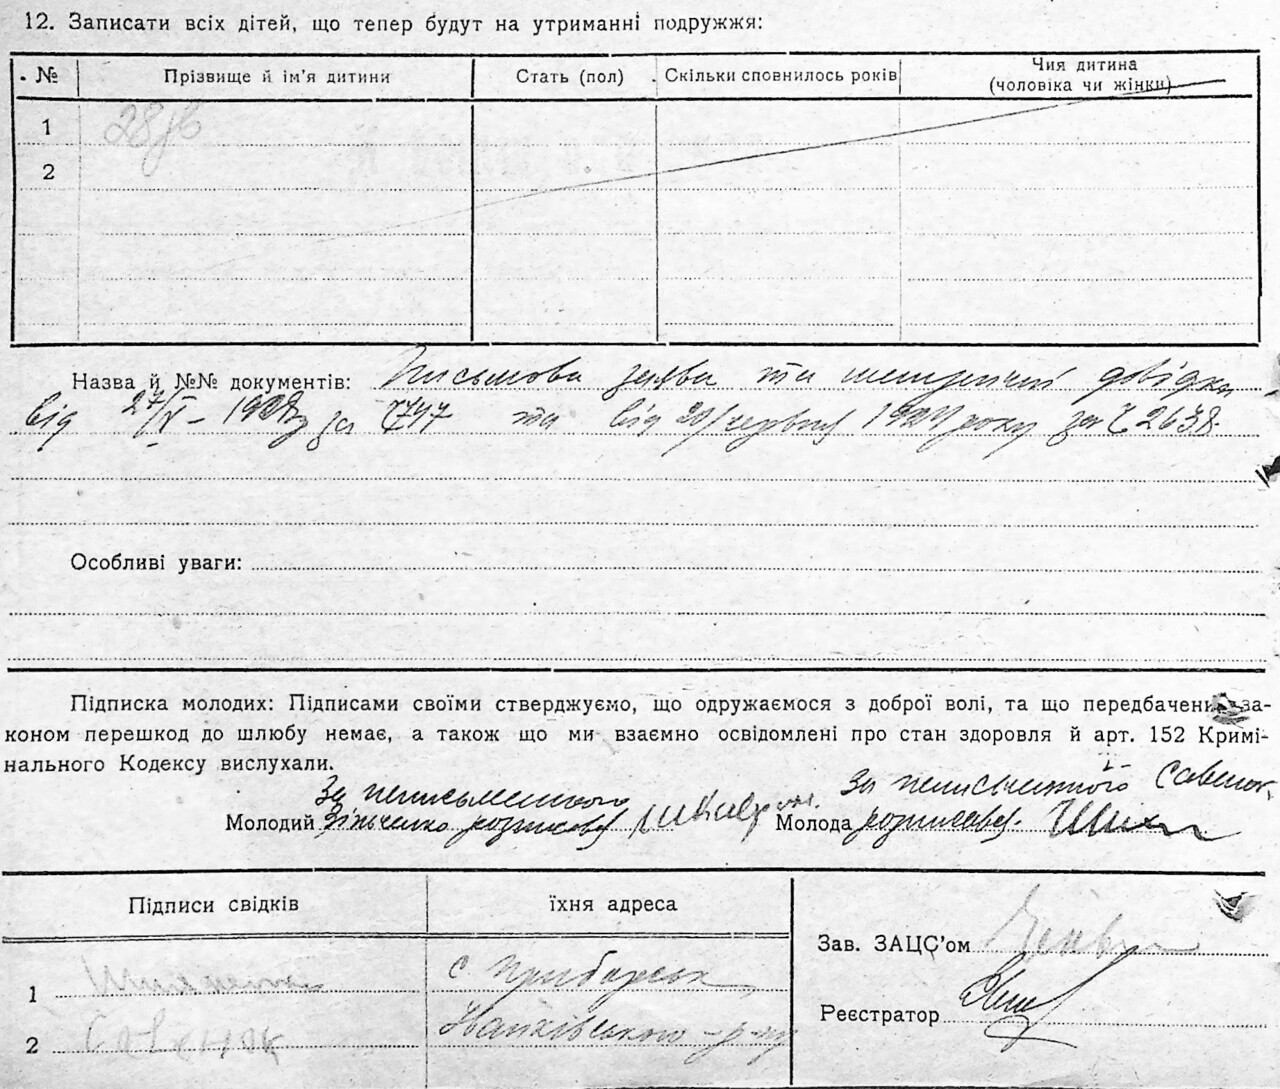 12. Записати всіх дітей, що тепер будут на утриманні подружжя:
№ Прізвище й ім'я дитини Стать (пол) Скільки сповнилось років Чия дитина
(чоловіка чи жінки)
1
2
Назва й №№ документів: Письмова заява та метричні довідки
від 27/V- за 7747 та від 20/червня року за 2638.
Особливі уваги:
Підписка молодих: Підписами своїми стверджуємо, що одружаємося з доброї волі, та що передбачених за-
коном перешкод до шлюбу немає, а також що ми взаємно освідомлені про стан здоровля й арт. 152 Кримі-
нального Кодексу вислухали.
За неписьменного За неписьменного
Молодий Зінченко розписався Молода розписався.
Підписи свідків їхня адреса
Зав. ЗАЦС'ом
1 с Приборськ
Реєстратор
2 Савенок Іванківського р-ну